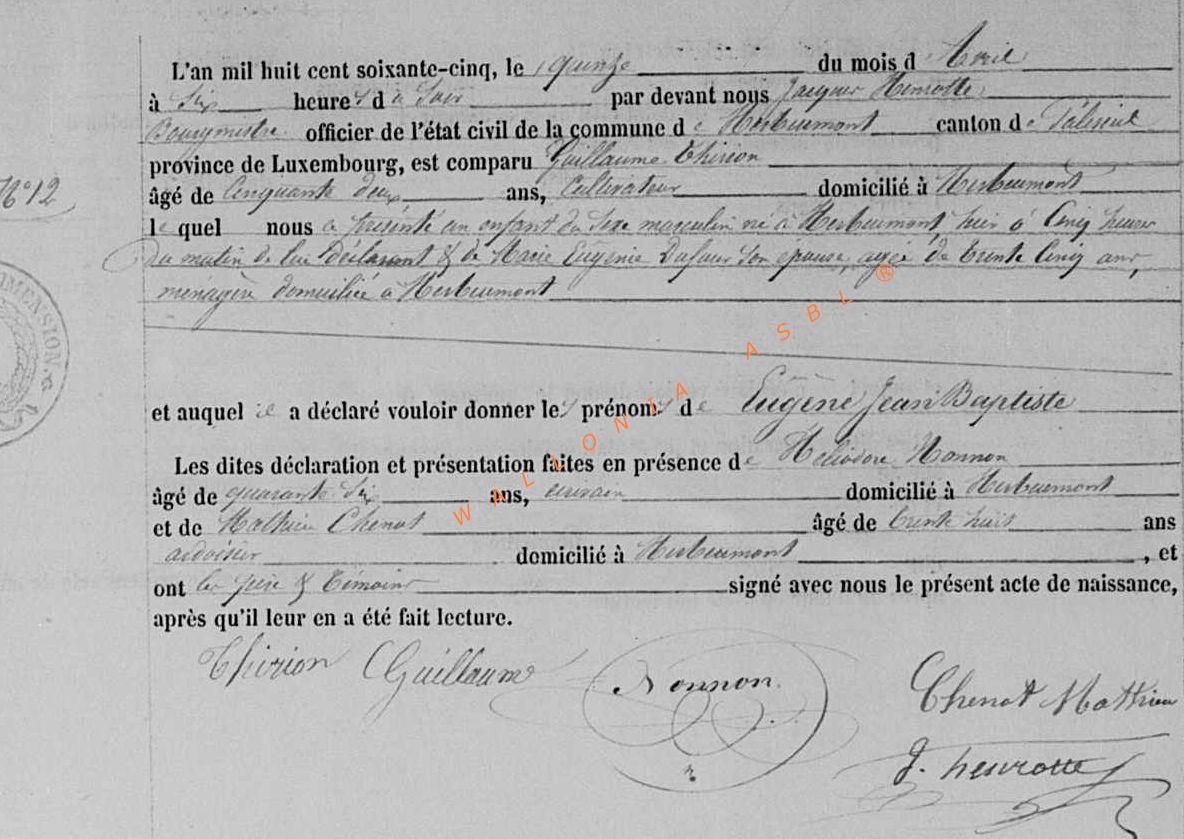 L'an mil huit cent soixante-cinq, le quinze du mois d'Avril
à six heures du soir par devant nous Jacques Henrotte
Bourgmestre officier de l'état civil de la commune de Herbeumont canton de Paliseul
province de Luxembourg, est comparu Guillaume Thirion
N° 12
âgé de cinquante deux ans, cultivateur domicilié à Herbeumont
le quel nous a présenté un enfant du sexe masculin né à Herbeumont, hier à cinq heures
du matin de lui déclarant & de Marie Eugénie Dufour son épouse, agée de trente cinq ans,
ménagère domiciliée à Herbeumont
MENSION.
et auquel il a déclaré vouloir donner les prénoms de Eugène Jean Baptiste
Les dites déclaration et présentation faites en présence de Héliodore Nonnon
âgé de quarante six ans, domicilié à Herbeumont
et de Mathieu Chenot âgé de trente huit ans
ardoisier domicilié à Herbeumont, et
ont les père & témoins signé avec nous le présent acte de naissance,
après qu'il leur en a été fait lecture.
Thirion Guillaume Nonnon Chenot Mathieu
J. henrotte
WALLONIA ASBL ®